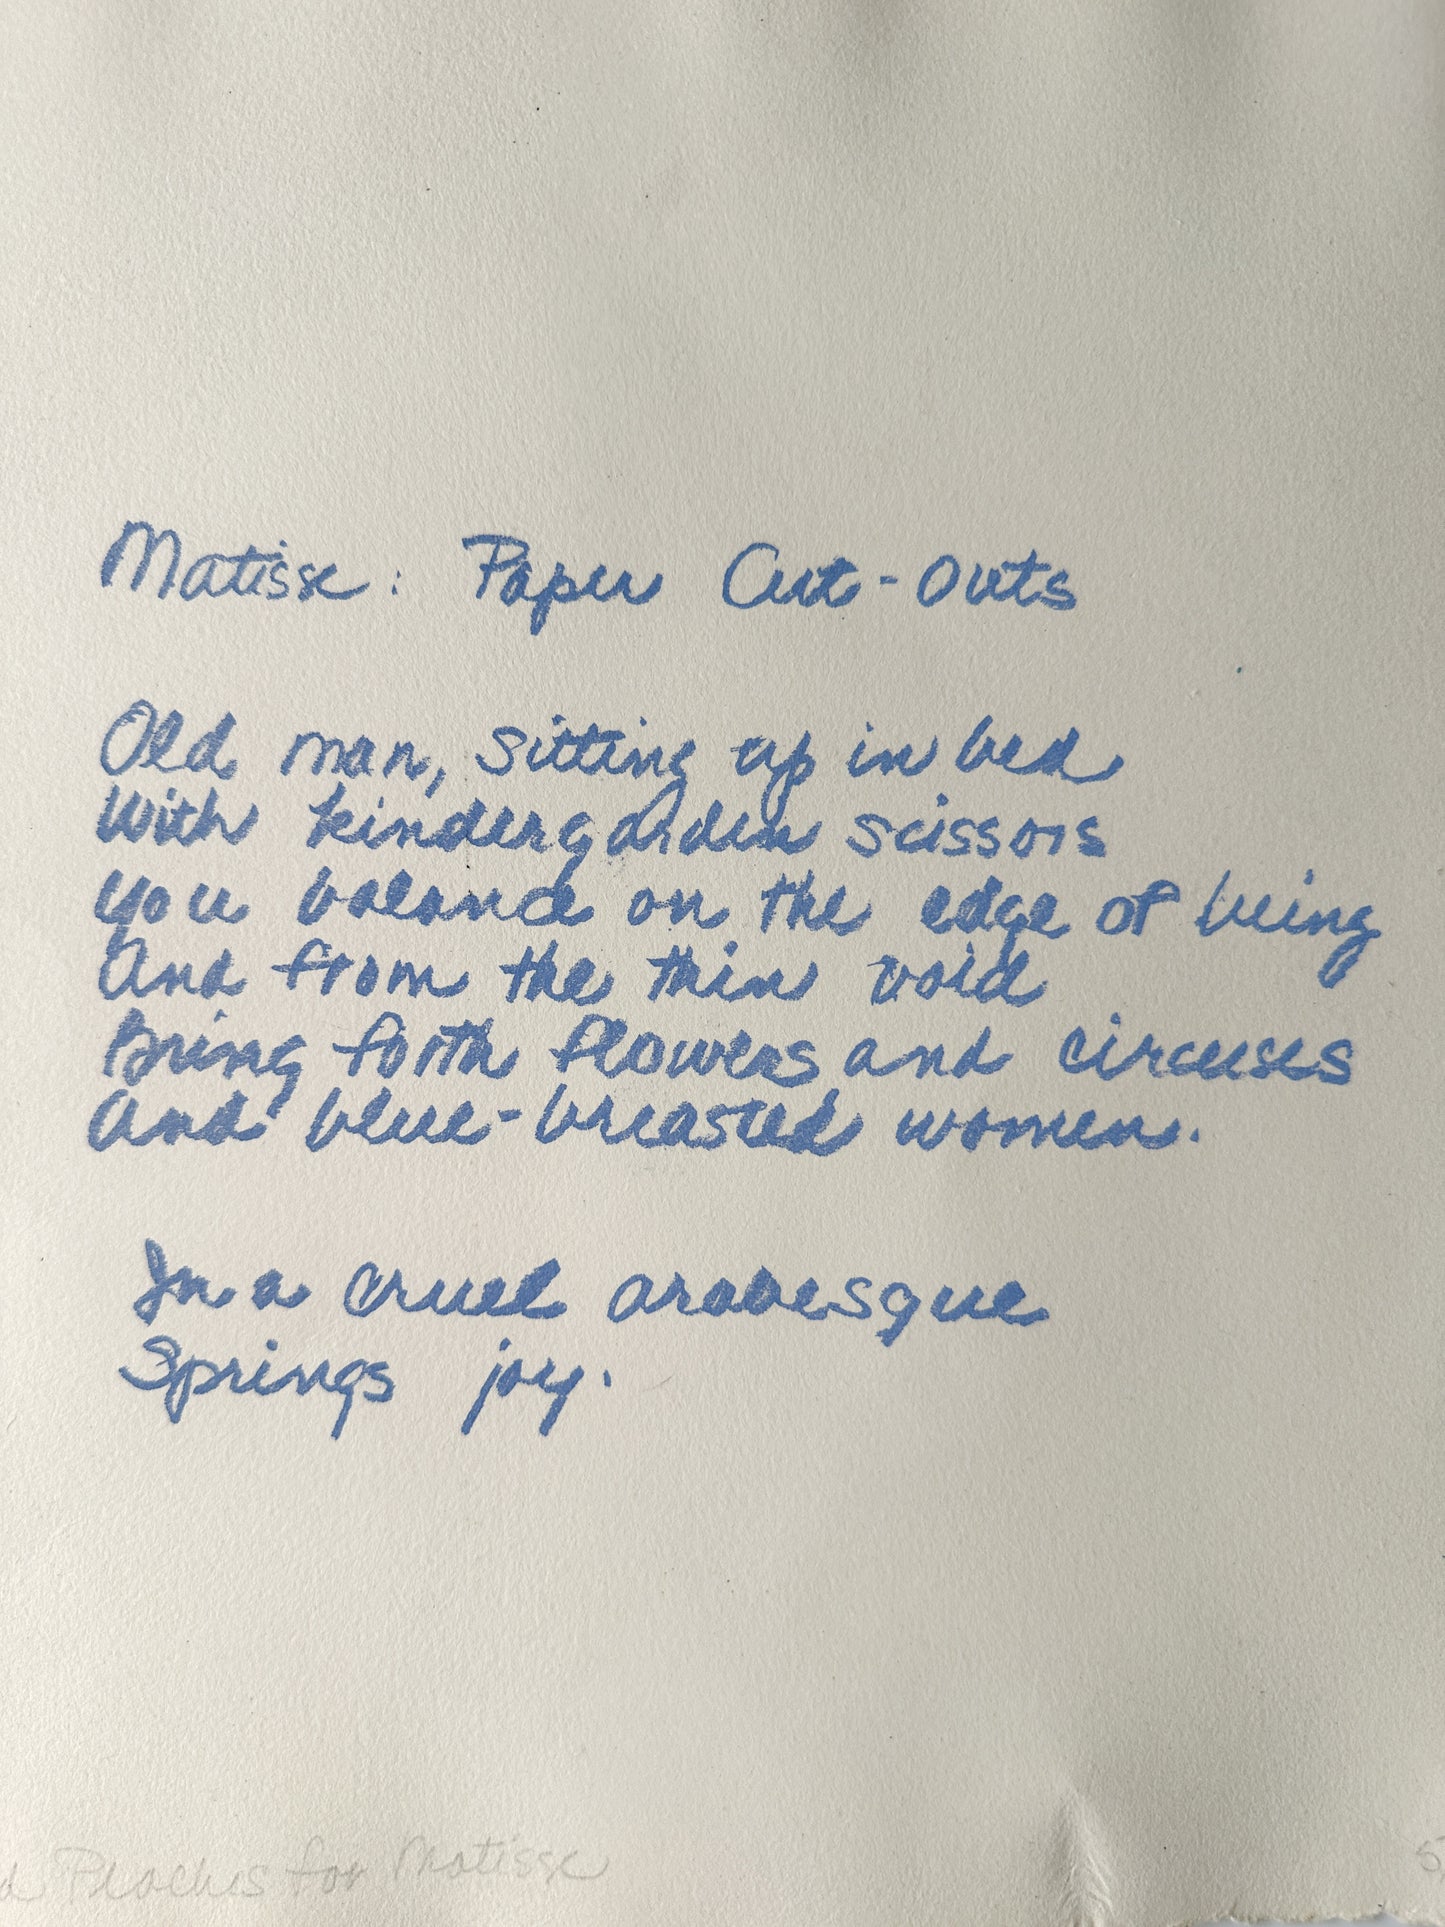 Matisse: Paper Cut-Outs
Old man, sitting up in bed
With kindergarden scissors
You balance on the edge of being
And from the thin void
Bring forth flowers and circuses
And blue-breasted women.
In a cruel arabesque
Springs joy.
Peaches for Matisse